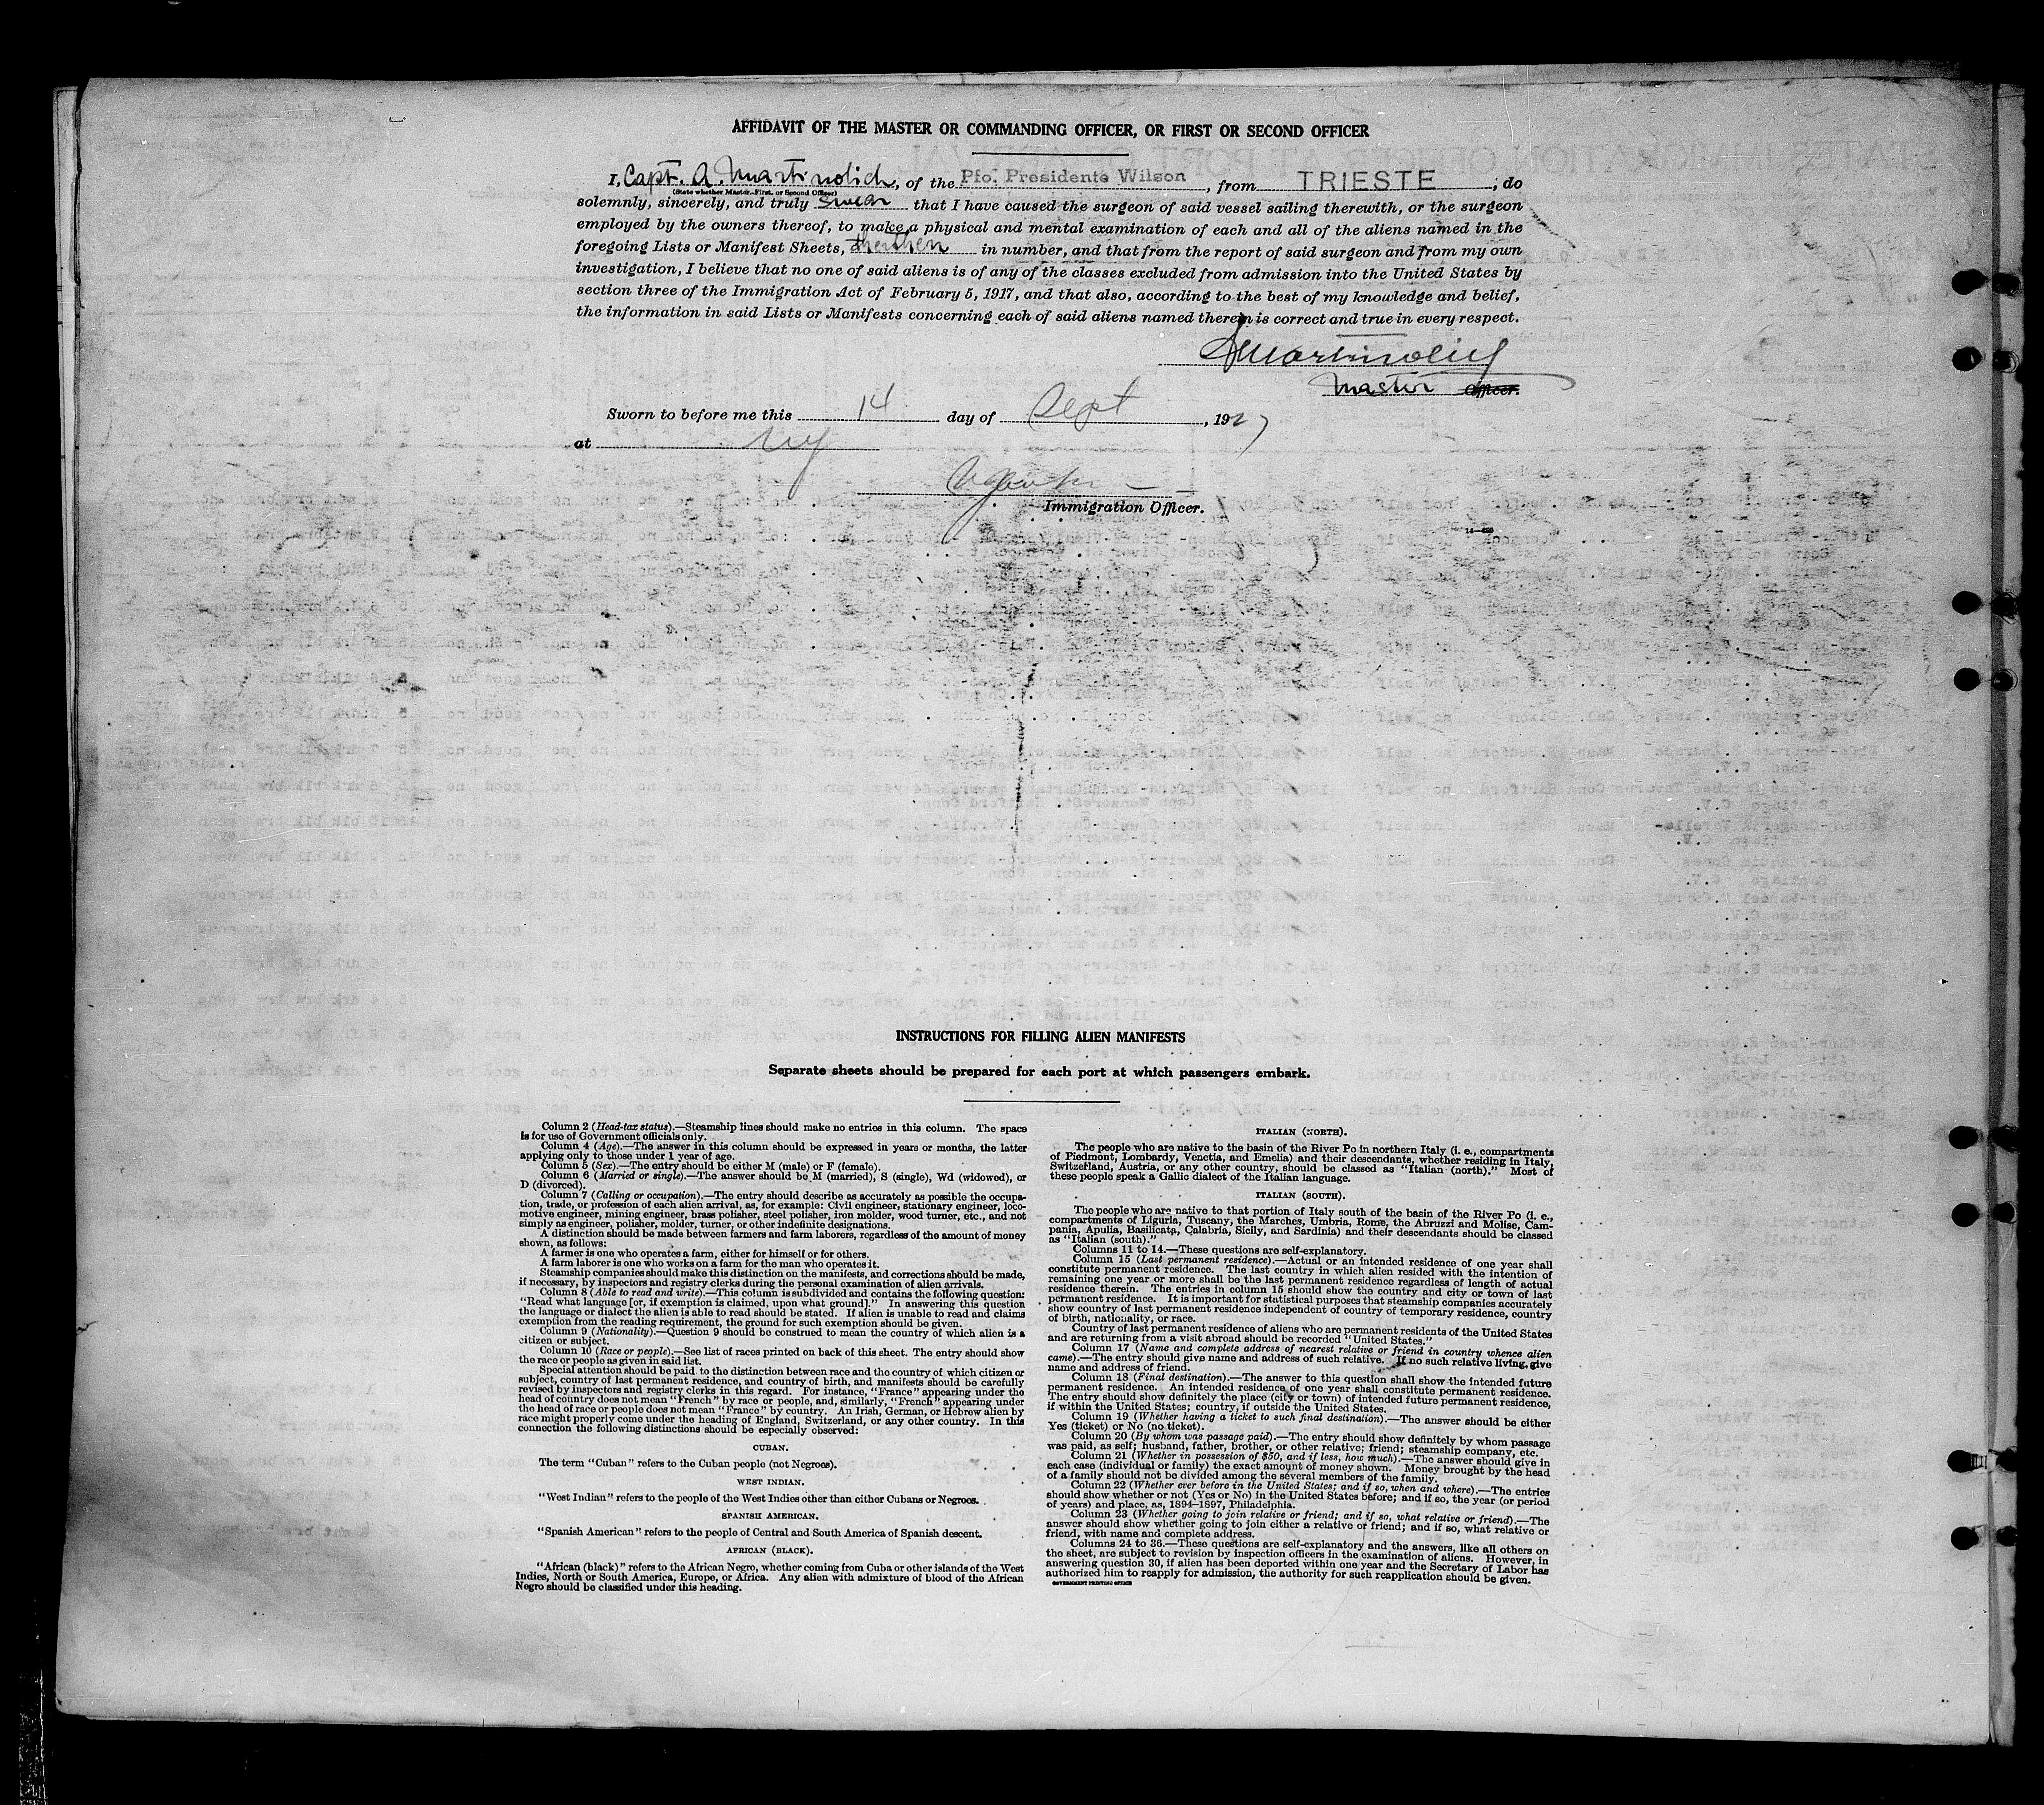 AFFIDAVIT OF THE MASTER OR COMMANDING OFFICER, OR FIRST OR SECOND OFFICER
I, Capt. A. Martinolich, of the Pfo. Presidente Wilson, from TRIESTE; do
(State whether Master, First, or Second Officer)
solemnly, sincerely, and truly swear that I have caused the surgeon of said vessel sailing therewith, or the surgeon
employed by the owners thereof, to make a physical and mental examination of each and all of the aliens named in the
foregoing Lists or Manifest Sheets, in number, and that from the report of said surgeon and from my own
investigation, I believe that no one of said aliens is of any of the classes excluded from admission into the United States by
section three of the Immigration Act of February 5, 1917, and that also, according to the best of my knowledge and belief,
the information in said Lists or Manifests concerning each of said aliens named therein is correct and true in every respect.
AMartinolich
Master Officer.
Sworn to before me this 14 day of Sept, 1927
at NY
Immigration Officer.
14—430
INSTRUCTIONS FOR FILLING ALIEN MANIFESTS
Separate sheets should be prepared for each port at which passengers embark.
Column 2 (Head-tax status).—Steamship lines should make no entries in this column. The space
is for use of Government officials only.
Column 4 (Age).—The answer in this column should be expressed in years or months, the latter
applying only to those under 1 year of age.
Column 5 (Sex).—The entry should be either M (male) or F (female).
Column 6 (Married or single).—The answer should be M (married), S (single), Wd (widowed), or
D (divorced).
Column 7 (Calling or occupation).—The entry should describe as accurately as possible the occupa-
tion, trade, or profession of each alien arrival, as, for example: Civil engineer, stationary engineer, loco-
motive engineer, mining engineer, brass polisher, steel polisher, iron molder, wood turner, etc., and not
simply as engineer, polisher, molder, turner, or other indefinite designations.
A distinction should be made between farmers and farm laborers, regardless of the amount of money
shown, as follows:
A farmer is one who operates a farm, either for himself or for others.
A farm laborer is one who works on a farm for the man who operates it.
Steamship companies should make this distinction on the manifests, and corrections should be made,
if necessary, by inspectors and registry clerks during the personal examination of alien arrivals.
Column 8 (Able to read and write).—This column is subdivided and contains the following question:
"Read what language [or, if exemption is claimed, upon what ground]." In answering this question
the language or dialect the alien is able to read should be stated. If alien is unable to read and claims
exemption from the reading requirement, the ground for such exemption should be given.
Column 9 (Nationality).—Question 9 should be construed to mean the country of which alien is a
citizen or subject.
Column 10 (Race or people).—See list of races printed on back of this sheet. The entry should show
the race or people as given in said list.
Special attention should be paid to the distinction between race and the country of which citizen or
subject, country of last permanent residence, and country of birth, and manifests should be carefully
revised by inspectors and registry clerks in this regard. For instance, "France" appearing under the
head of country does not mean "French" by race or people, and, similarly, "French" appearing under
the head of race or people does not mean "France" by country. An Irish, German, or Hebrew alien by
race might properly come under the heading of England, Switzerland, or any other country. In this
connection the following distinctions should be especially observed:
CUBAN.
The term "Cuban" refers to the Cuban people (not Negroes).
WEST INDIAN.
"West Indian" refers to the people of the West Indies other than either Cubans or Negroes.
SPANISH AMERICAN.
"Spanish American" refers to the people of Central and South America of Spanish descent.
AFRICAN (BLACK).
"African (black)" refers to the African Negro, whether coming from Cuba or other islands of the West
Indies, North or South America, Europe, or Africa. Any alien with admixture of blood of the African
Negro should be classified under this heading.
ITALIAN (NORTH).
The people who are native to the basin of the River Po in northern Italy (i. e., compartments
of Piedmont, Lombardy, Venetia, and Emelia) and their descendants, whether residing in Italy,
Switzerland, Austria, or any other country, should be classed as "Italian (north)." Most of
these people speak a Gallic dialect of the Italian language.
ITALIAN (SOUTH).
The people who are native to that portion of Italy south of the basin of the River Po (i. e.,
compartments of Liguria, Tuscany, the Marches, Umbria, Rome, the Abruzzi and Molise, Cam-
pania, Apulia, Basilicata, Calabria, Sicily, and Sardinia) and their descendants should be classed
as "Italian (south)."
Columns 11 to 14.—These questions are self-explanatory.
Column 15 (Last permanent residence).—Actual or an intended residence of one year shall
constitute permanent residence. The last country in which alien resided with the intention of
remaining one year or more shall be the last permanent residence regardless of length of actual
residence therein. The entries in column 15 should show the country and city or town of last
permanent residence. It is important for statistical purposes that steamship companies accurately
show country of last permanent residence independent of country of temporary residence, country
of birth, nationality, or race.
Country of last permanent residence of aliens who are permanent residents of the United States
and are returning from a visit abroad should be recorded "United States."
Column 17 (Name and complete address of nearest relative or friend in country whence alien
came).—The entry should give name and address of such relative. If no such relative living, give
name and address of friend.
Column 18 (Final destination).—The answer to this question shall show the intended future
permanent residence. An intended residence of one year shall constitute permanent residence.
The entry should show definitely the place (city or town) of intended future permanent residence,
if within the United States; country, if outside the United States.
Column 19 (Whether having a ticket to such final destination).—The answer should be either
Yes (ticket) or No (no ticket).
Column 20 (By whom was passage paid).—The entry should show definitely by whom passage
was paid, as self; husband, father, brother, or other relative; friend; steamship company, etc.
Column 21 (Whether in possession of $50, and if less, how much).—The answer should give in
each case (individual or family) the exact amount of money shown. Money brought by the head
of a family should not be divided among the several members of the family.
Column 22 (Whether ever before in the United States; and if so, when and where).—The entries
should show whether or not (Yes or No) in the United States before; and if so, the year (or period
of years) and place, as, 1894–1897, Philadelphia.
Column 23 (Whether going to join relative or friend; and if so, what relative or friend).—The
answer should show whether going to join either a relative or friend; and if so, what relative or
friend, with name and complete address.
Columns 24 to 36.—These questions are self-explanatory and the answers, like all others on
the sheet, are subject to revision by inspection officers in the examination of aliens. However, in
answering question 30, if alien has been deported within one year and the Secretary of Labor has
authorized him to reapply for admission, the authority for such reapplication should be given.
GOVERNMENT PRINTING OFFICE